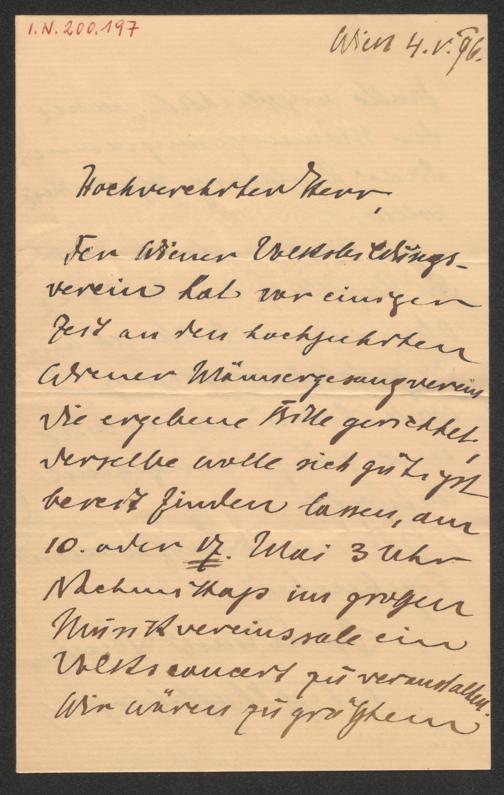 I.N. 200.197
Wien 4. V. 96.
Hochverehrter Herr,
Der Wiener Volksbildungs-
verein hat vor einigen
Zeit an den hochgeehrten
Wiener Männergesangverein
die ergebene Bitte gerichtet,
derselbe wolle sich gütigst
bereit finden lassen, am
10. oder 17. Mai 3 Uhr
Nachmittags im großen
Musikvereinssale ein
Volksconcert zu veranstalten.
Wir wären zu größtem